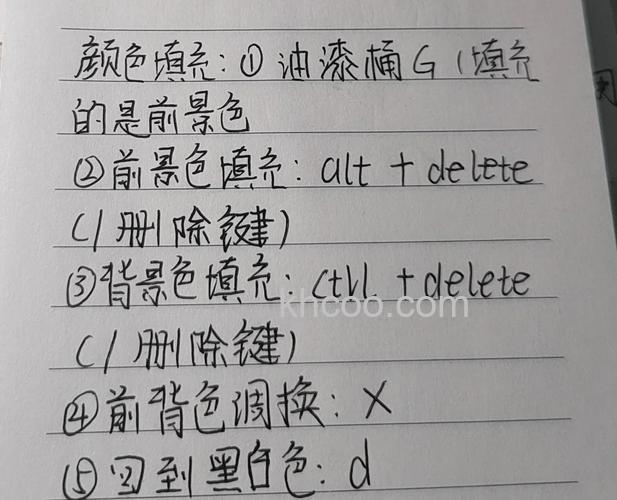 颜色填充:① 油漆桶 G (填充
的是前景色
②前景色填充: alt + delete
(/删除键)
③背景色填充: ctrl + delete
khcoo.com
(/删除键)
④前背色调换: X
⑤回到黑白色: d